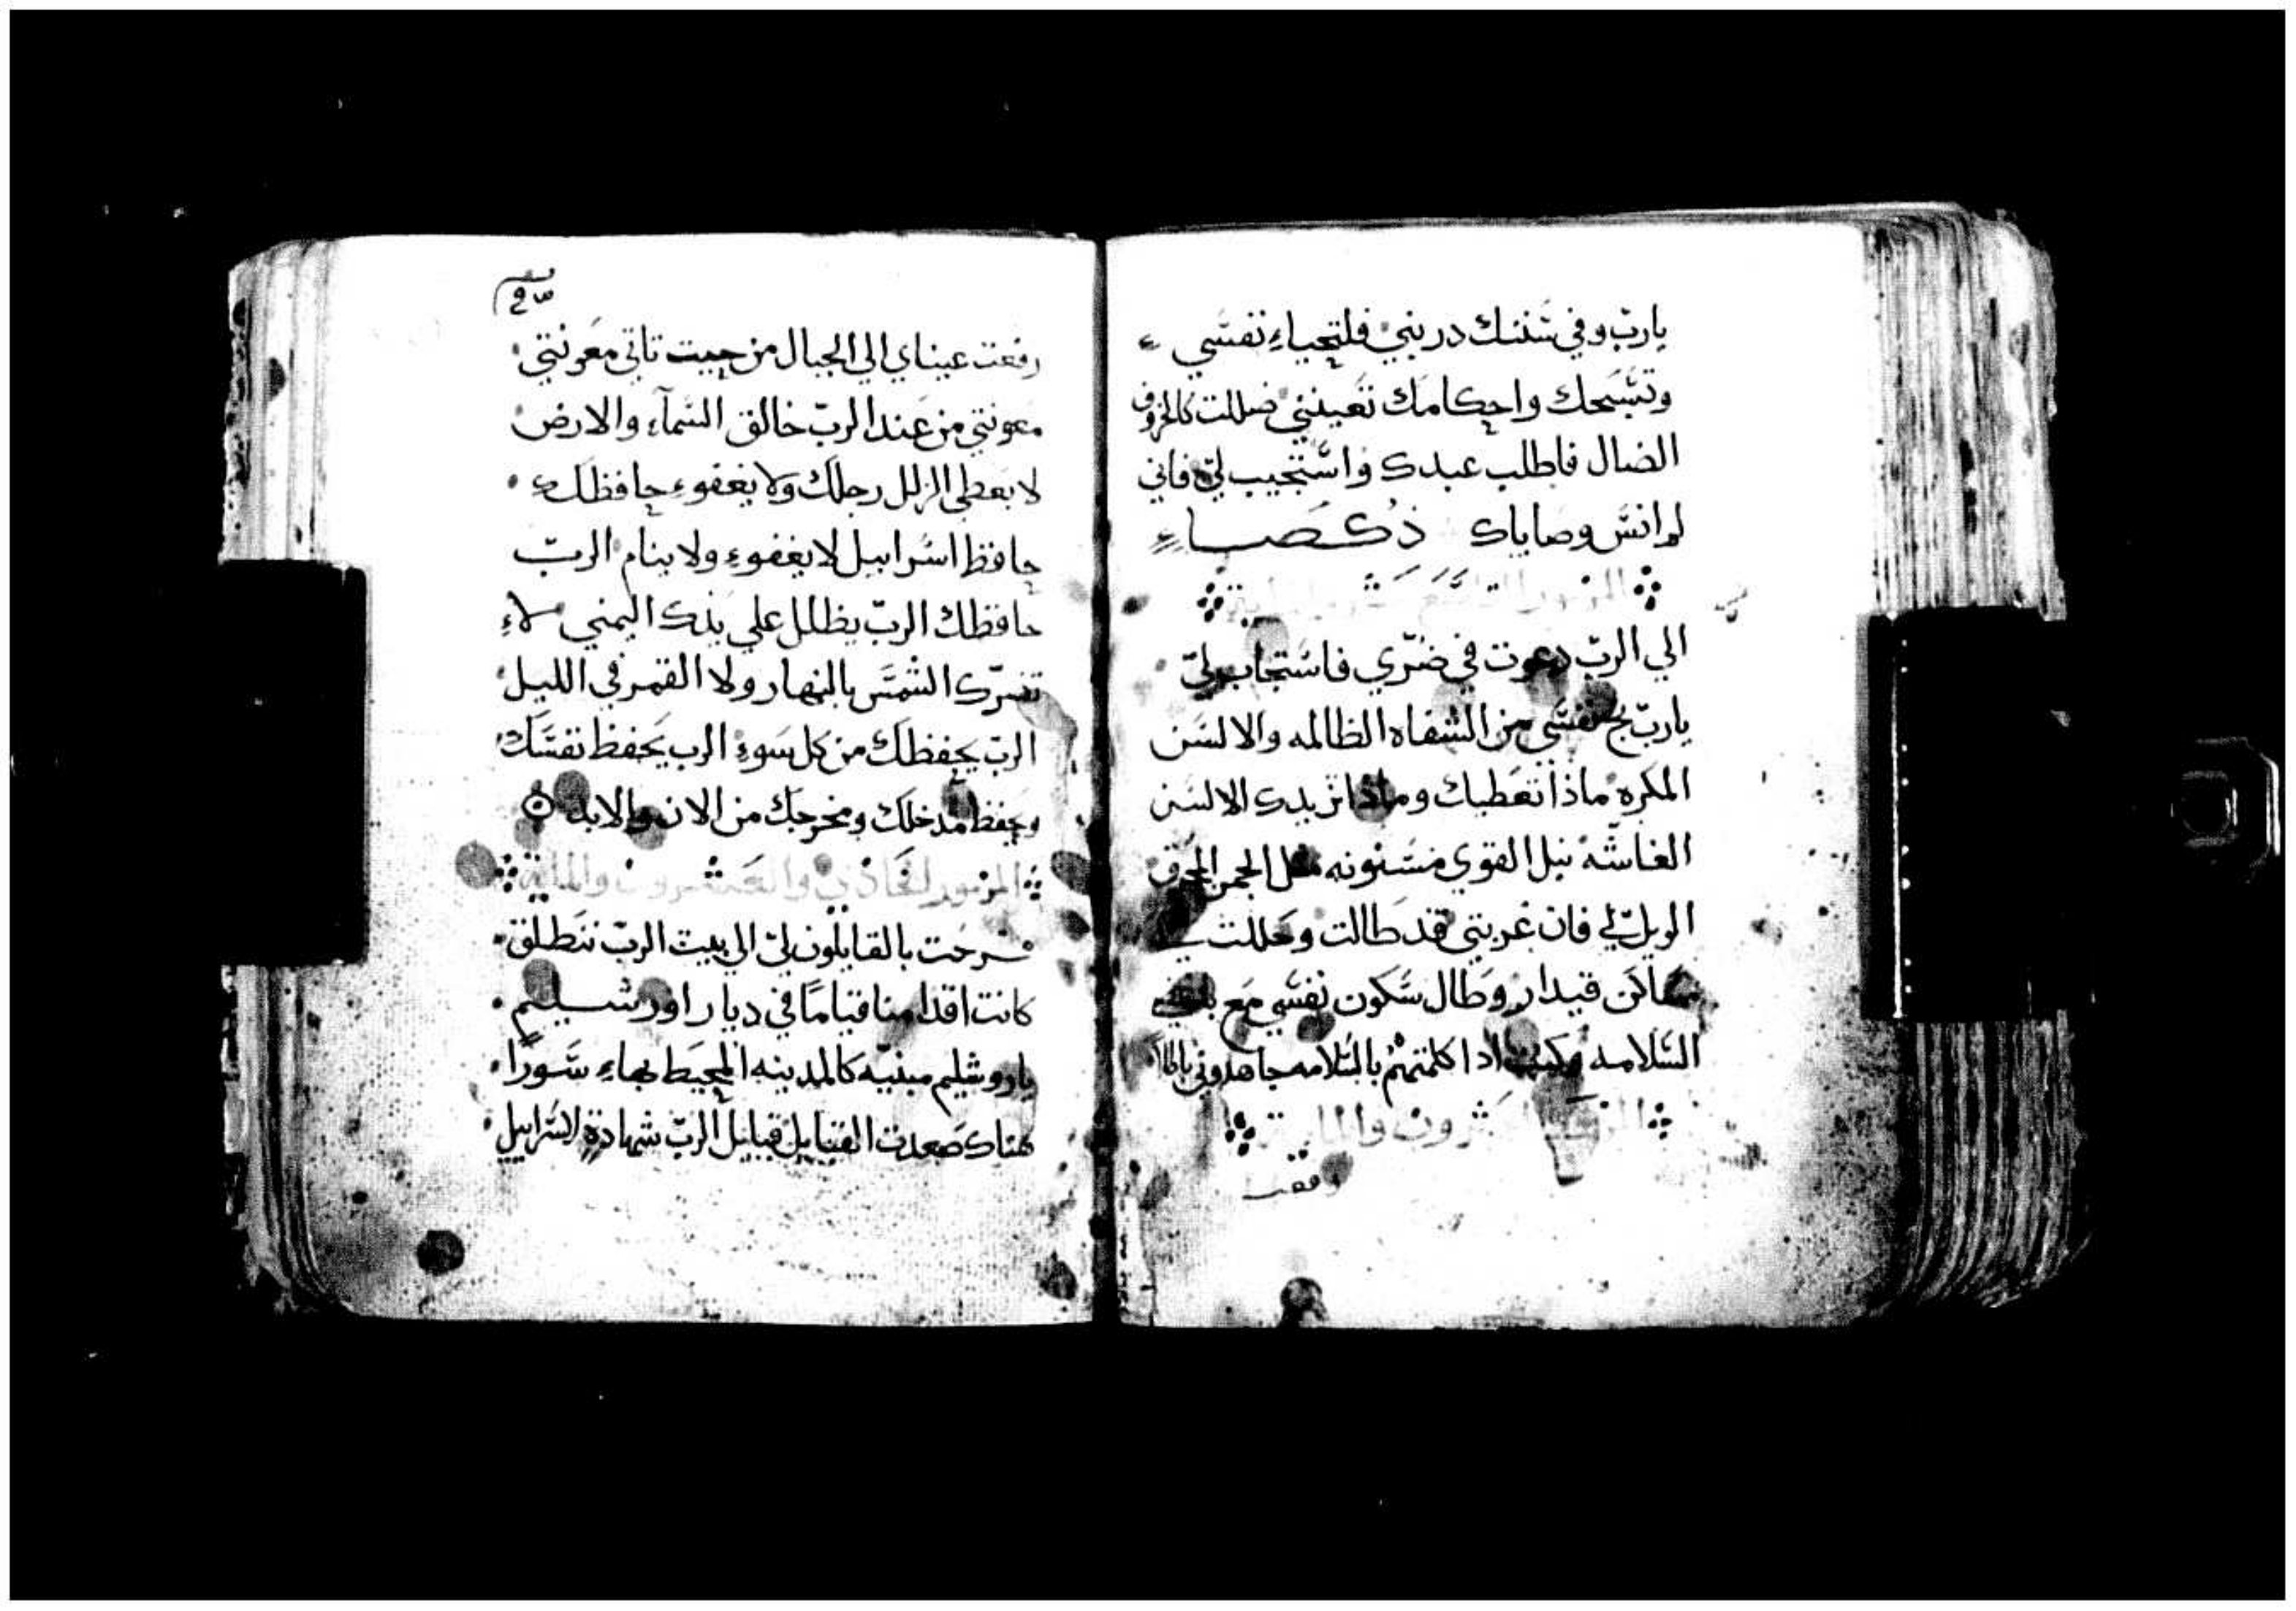 يارب وفي سننك دربني فلتحياء نفسي
وتسبحك واحكامك تعينني ضللت كالخروف
الضال فاطلب عبدك واستجيب لي فاني
لم انس وصاياك ذكصاء
المزمور التاسع عشر والمايه
الي الرب دعوت في ضري فاستجاب لي
يارب نج نفسي من الشفاه الظالمه والالسن
المكره ماذا تعطيك وماذا تزيدك الالسن
الغاشه نبل القوي مسنونه مثل الجمر المحرق
الويل لي فان غربتي قد طالت وحللت في
مساكن قيدار وطال سكون نفسي مع باغضي
السلامه وكنت اذا كلمتهم بالسلامه جاهدوني باطلا
المزمور العشرون والمايه
رفعت
رفعت عيناي الي الجبال من حيت تاتي معونتي
معونتي من عند الرب خالق السمآء والارض
لا يعطي الزلل رجلك ولا يغفوء حافظك
حافظ اسراييل لا يغفوء ولا ينام الرب
حافظك الرب يظلل علي يدك اليمني لاء
تضرك الشمس بالنهار ولا القمر في الليل
الرب يحفظك من كل سوء الرب يحفظ نفسك
ويحفظ مدخلك ومخرجك من الان والابد
المزمور الحادي والعشرون والمايه
فرحت بالقايلون لي الي بيت الرب ننطلق
كانت اقدامنا قياما في ديار اورشليم
ياروشليم مبنيه كالمدينه المحيط بهاء سورا
هناك صعدت القبايل قبايل الرب شهادة لاسراييل